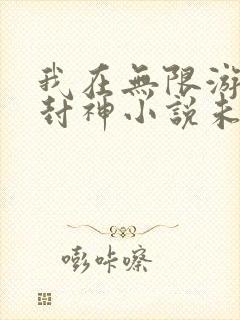 我在無限游
封神小說未
嘭咔嚓